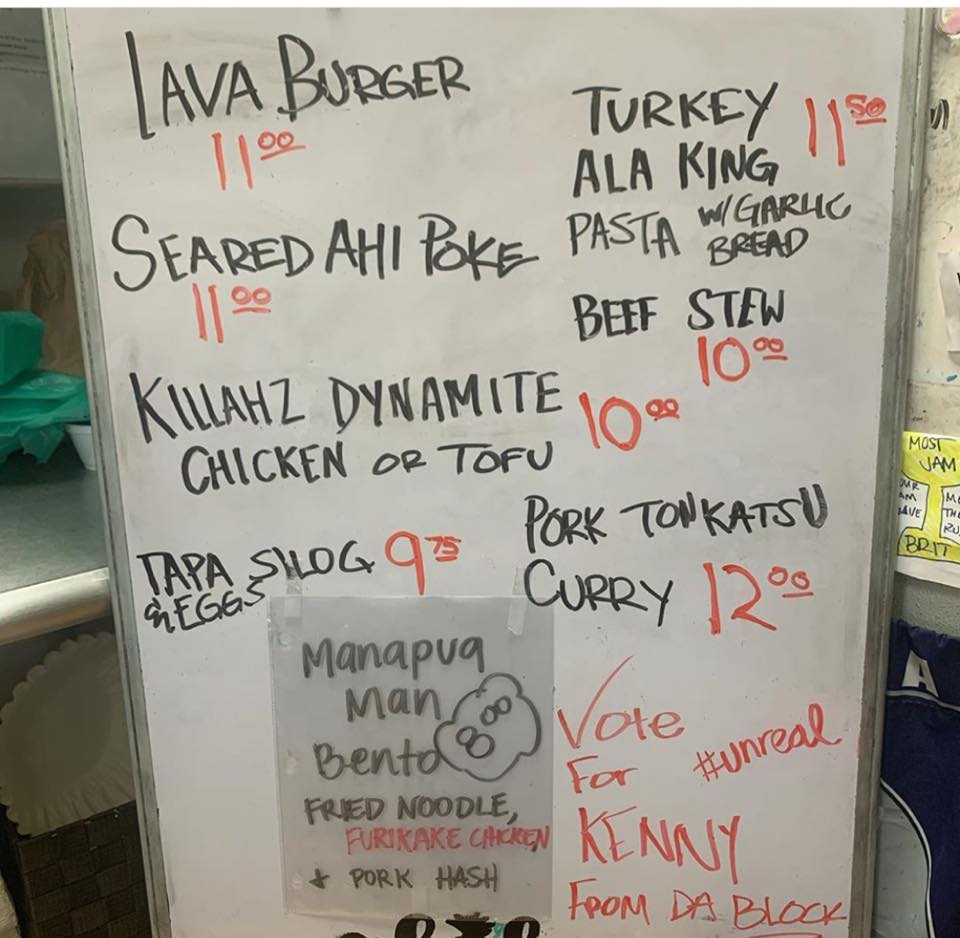 LAVA BURGER
11.00
SEARED AHI POKE
11.00
KILLAHZ DYNAMITE 10.00
CHICKEN OR TOFU
TAPA SILOG 9.75
& EGGS
TURKEY 11.50
ALA KING
PASTA W/ GARLIC
BREAD
BEEF STEW
10.00
PORK TONKATSU
CURRY 12.00
Manapua
Man
Bento
FRIED NOODLE,
FURIKAKE CHICKEN
+ PORK HASH
Vote
For #unreal
KENNY
FROM DA BLOCK
MOST
JAM
BRIT
A